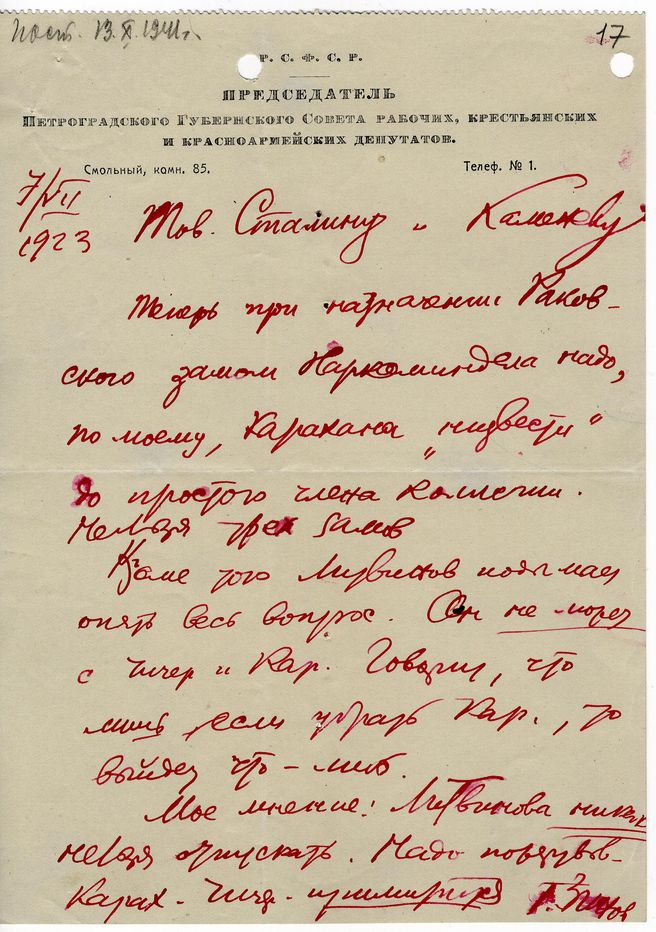 Пост. 13.X.1941г.
17
Р. С. Ф. С. Р.
ПРЕДСЕДАТЕЛЬ
ПЕТРОГРАДСКОГО ГУБЕРНСКОГО СОВЕТА РАБОЧИХ, КРЕСТЬЯНСКИХ
И КРАСНОАРМЕЙСКИХ ДЕПУТАТОВ.
Смольный, комн. 85.
Телеф. № 1.
7/VII
1923
Тов. Сталину и Каменеву
Теперь при назначении Раков-
ского замом Наркоминдела надо,
по моему, Карахана „низвести“
до простого члена коллегии.
Нельзя трех замов
Кроме того Литвинов подымает
опять весь вопрос. Он не может
с Чичер и Кар. Говорит, что
лишь если убрать Кар., то
выйдет что-либ.
Мое мнение: Литвинова никак
нельзя отпускать. Надо
Карах. Чиче. примирится Г. Зинов